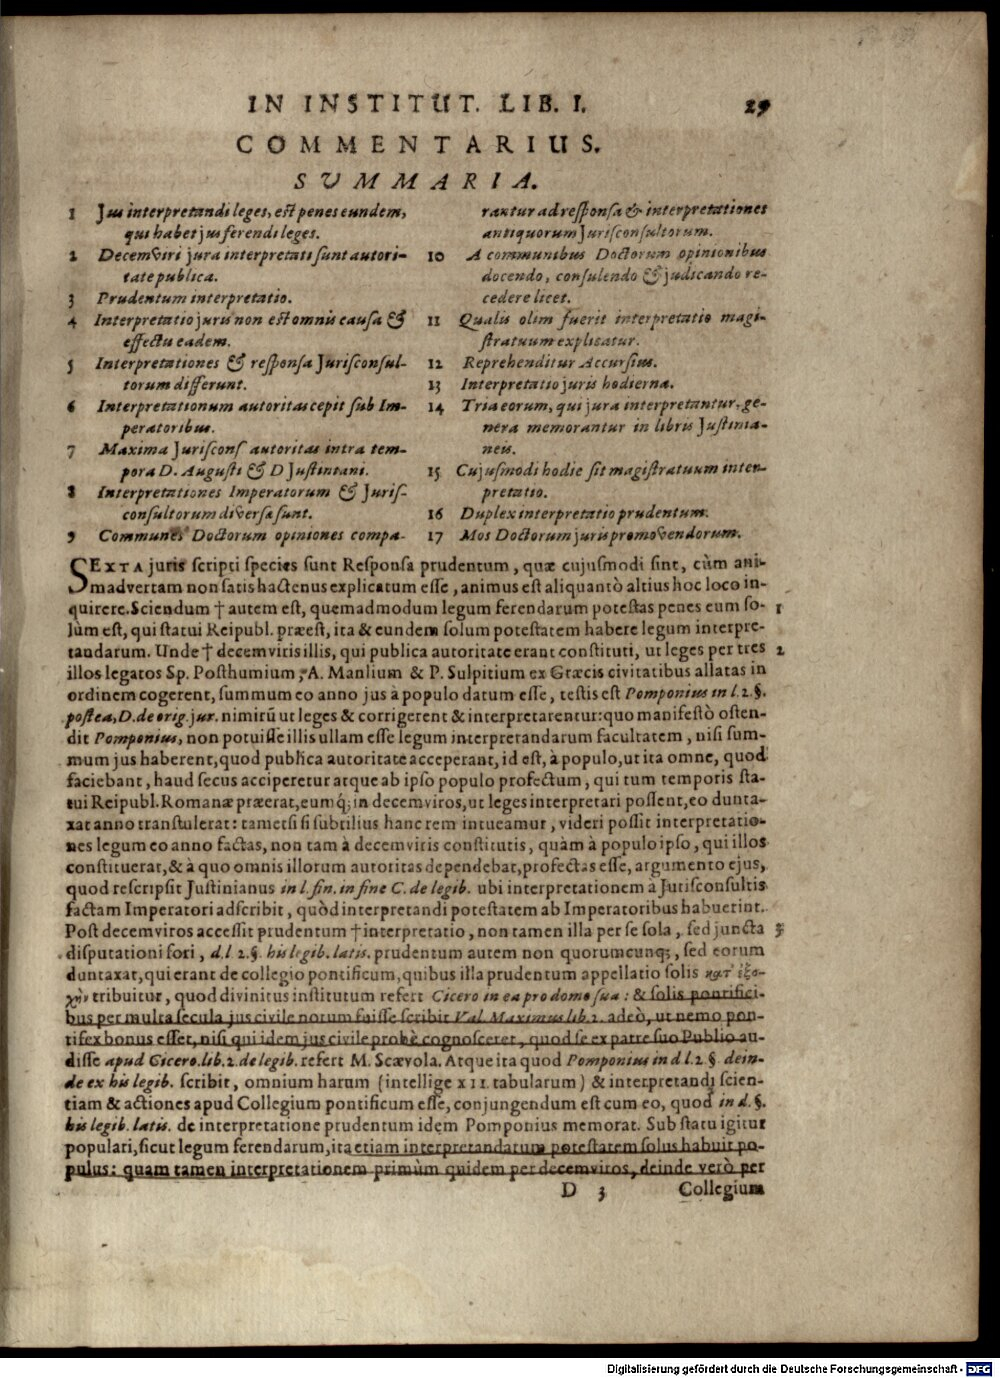 IN INSTITUT. LIB. I. 29
COMMENTARIUS.
SUMMARIA.
1 Jus interpretandi leges, est penes eundem,
qui habet jus ferendi leges.
2 Decemviri jura interpretati sunt autori-
tate publica.
3 Prudentum interpretatio.
4 Interpretatio juris non est omnis causa &
effectu eadem.
5 Interpretationes & responsa Jurisconsul-
torum differunt.
6 Interpretationum autoritas cepit sub Im-
peratoribus.
7 Maxima Juriscons autoritas intra tem-
pora D. Augusti & D Justiniani.
8 Interpretationes Imperatorum & Juris-
consultorum diversa sunt.
9 Communes Doctorum opiniones compa-
rantur ad responsa & interpretationes
antiquorum Jurisconsultorum.
10 A communibus Doctorum opinionibus
docendo, consulendo & judicando re-
cedere licet.
11 Qualis olim fuerit interpretatio magi-
stratuum explicatur.
12 Reprehenditur Accursius.
13 Interpretatio juris hodierna.
14 Tria eorum, qui jura interpretantur, ge-
nera memorantur in libris Justinia-
neis.
15 Cujusmodi hodie sit magistratuum inter-
pretatio.
16 Duplex interpretatio prudentum.
17 Mos Doctorum juris promovendorum.
SEXTA juris scripti species sunt Responsa prudentum, quæ cujusmodi sint, cùm ani-
madvertam non satis hactenus explicatum esse, animus est aliquantò altius hoc loco in-
quirere. Sciendum † autem est, quemadmodum legum ferendarum potestas penes eum so- 1
lùm est, qui statui Reipubl. præest, ita & eundem solum potestatem habere legum interpre-
tandarum. Unde † decemviris illis, qui publica autoritate erant constituti, ut leges per tres 2
illos legatos Sp. Posthumium, A. Manlium & P. Sulpitium ex Græcis civitatibus allatas in
ordinem cogerent, summum eo anno jus à populo datum esse, testis est Pomponius in l. 2. §.
postea, D. de orig. jur. nimirũ ut leges & corrigerent & interpretarentur: quo manifestò osten-
dit Pomponius, non potuisse illis ullam esse legum interpretandarum facultatem, nisi sum-
mum jus haberent, quod publica autoritate acceperant, id est, à populo, ut ita omne, quod
faciebant, haud secus acciperetur atque ab ipso populo profectum, qui tum temporis sta-
tui Reipubl. Romanæ præerat, eumq; in decemviros, ut leges interpretari possent, eo dunta-
xat anno transtulerat: tametsi si subtilius hanc rem intueamur, videri possit interpretatio-
nes legum eo anno factas, non tam à decemviris constitutis, quàm à populo ipso, qui illos
constituerat, & à quo omnis illorum autoritas dependebat, profectas esse, argumento ejus,
quod rescripsit Justinianus in l. fin. in fine C. de legib. ubi interpretationem à Jurisconsultis
factam Imperatori adscribit, quòd interpretandi potestatem ab Imperatoribus habuerint.
Post decemviros accessit prudentum † interpretatio, non tamen illa per se sola, sed juncta 3
disputationi fori, d. l 2. §. his legib. latis. prudentum autem non quorumcunq;, sed eorum
duntaxat, qui erant de collegio pontificum, quibus illa prudentum appellatio solis κατ' ἐξο-
χὴν tribuitur, quod divinitus institutum refert Cicero in ea pro domo sua: & solis pontifici-
bus per multa secula jus civile notum fuisse scribit Val. Maximus lib. 2. adeò, ut nemo pon-
tifex bonus esset, nisi qui idem jus civile probè cognosceret, quod se ex patre suo Publio au-
disse apud Cicero. lib. 2. de legib. refert M. Scævola. Atque ita quod Pomponius in d l. 2 § dein-
de ex his legib. scribit, omnium harum (intellige XII. tabularum) & interpretandi scien-
tiam & actiones apud Collegium pontificum esse, conjungendum est cum eo, quod in d. §.
his legib. latis. de interpretatione prudentum idem Pomponius memorat. Sub statu igitur
populari, sicut legum ferendarum, ita etiam interpretandarum potestatem solus habuit po-
pulus: quam tamen interpretationem primùm quidem per decemviros, deinde verò per
D 3 Collegium
Digitalisierung gefördert durch die Deutsche Forschungsgemeinschaft - DFG